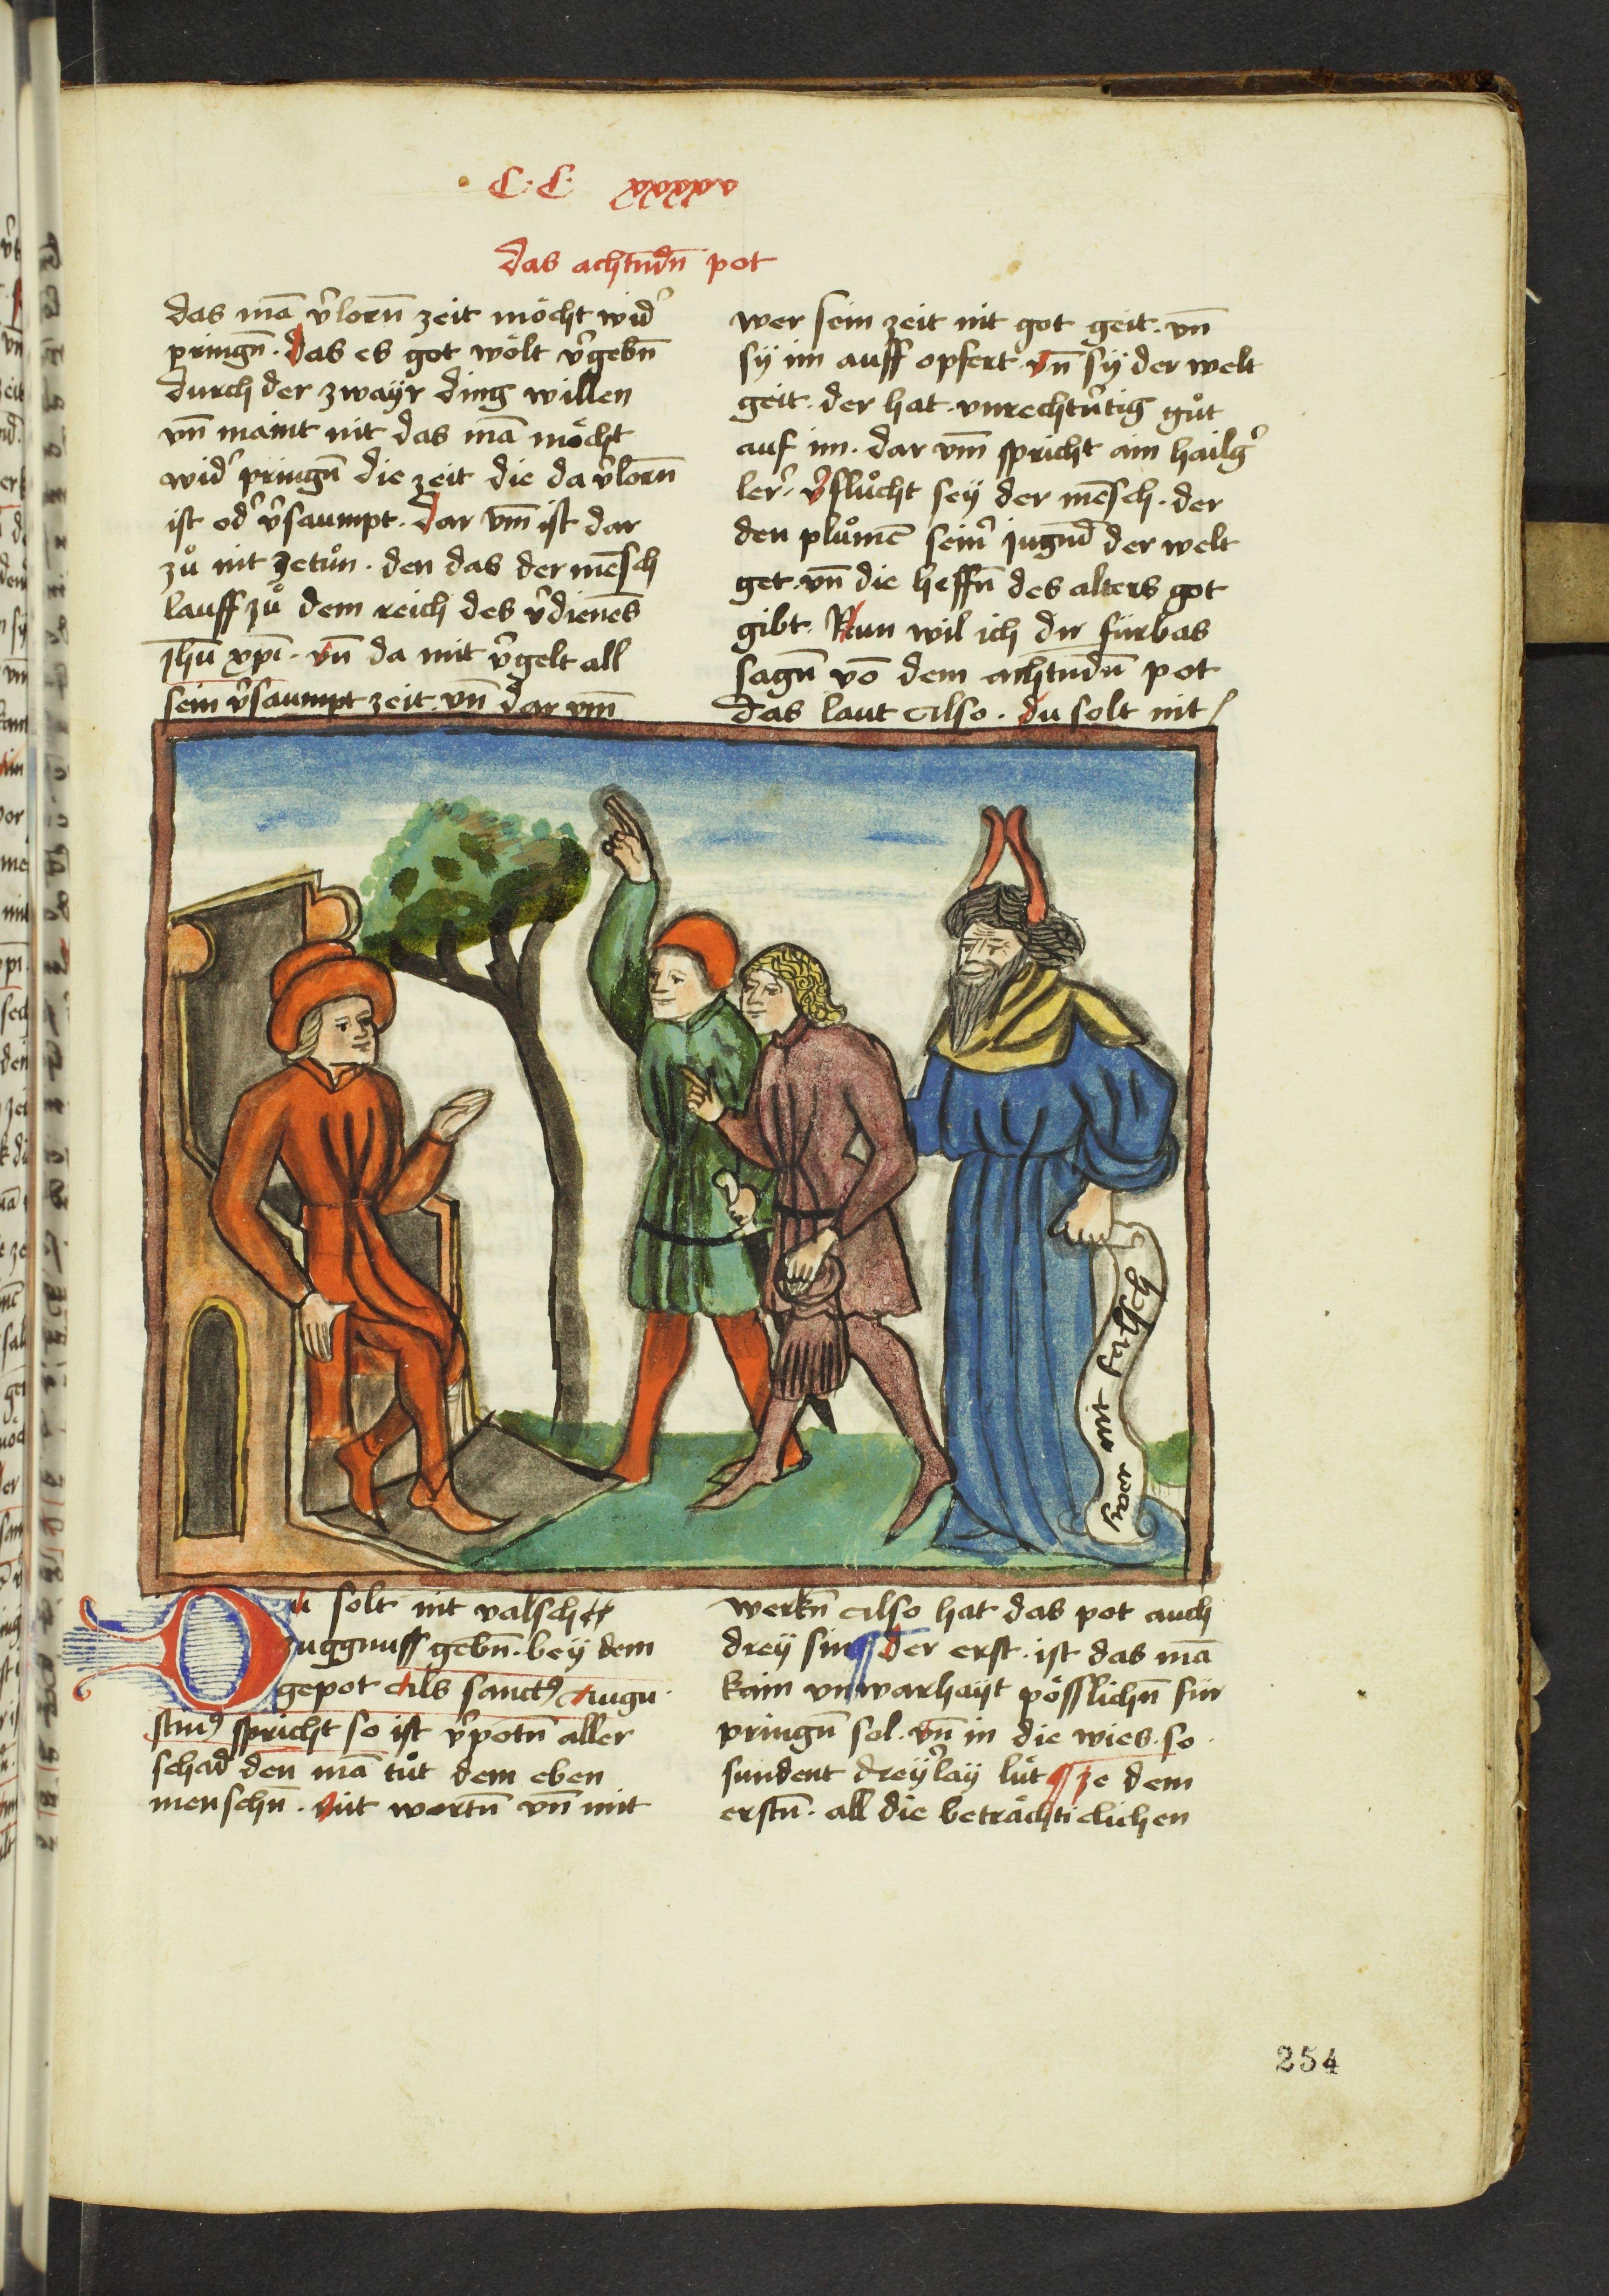 C·C· xxxxxv
das achtundn̄ pot
das mā v̓lorn̄ zeit möcht wid̓
pringn̄. das es got wölt v̓gebn̄
durch der zwaÿr ding willen
vn̄ maint nit das mā möcht
wid̓ pringn̄ die zeit die da v̓lorn̄
ist od̓ v̓saumpt. dar vm̄ ist dar
zů nit zetůn. den das der mēsch
lauff zů dem reich des v̓dienēs
jhū xpī. vn̄ da mit v̓gelt all
sein v̓saumpt zeit. vn̄ dar vm̄
wer sein zeit nit got geit. vn̄
sÿ im auff opfert. vn̄ sÿ der welt
geit. der hat. vnrechtv̓tig gůt
auf im. dar vm̄ spricht ain hailg̓
ler̓. v̓flůcht seÿ der mēsch. der
den plůmē sein̓ jugnd̄ der welt
get. vn̄ die heffn̄ des alters got
gibt. Nun wil ich dir fürbas
sagn̄ vō dem achtndn̄ pot
das laut also. du solt nit
hestu seyt mt way
Du solt nit valsch
zuggnuss gebn̄. bey dem
gepot als sanctꝰ Augu
stinꝰ spricht so ist v̓potn̄ aller
schad den mā tůt dem eben
menschn̄. Mit wortn̄ vn̄ mit
werkn̄ also hat das pot auch
dreÿ sin ¶ der erst. ist das mā
kain vnwarhaÿt pösslichn̄ für
pringn̄ sol. vn̄ in die wies. so
sundent dreÿ̓lay lüt ¶ ze dem
erstn̄. all die beträchticlichen
254